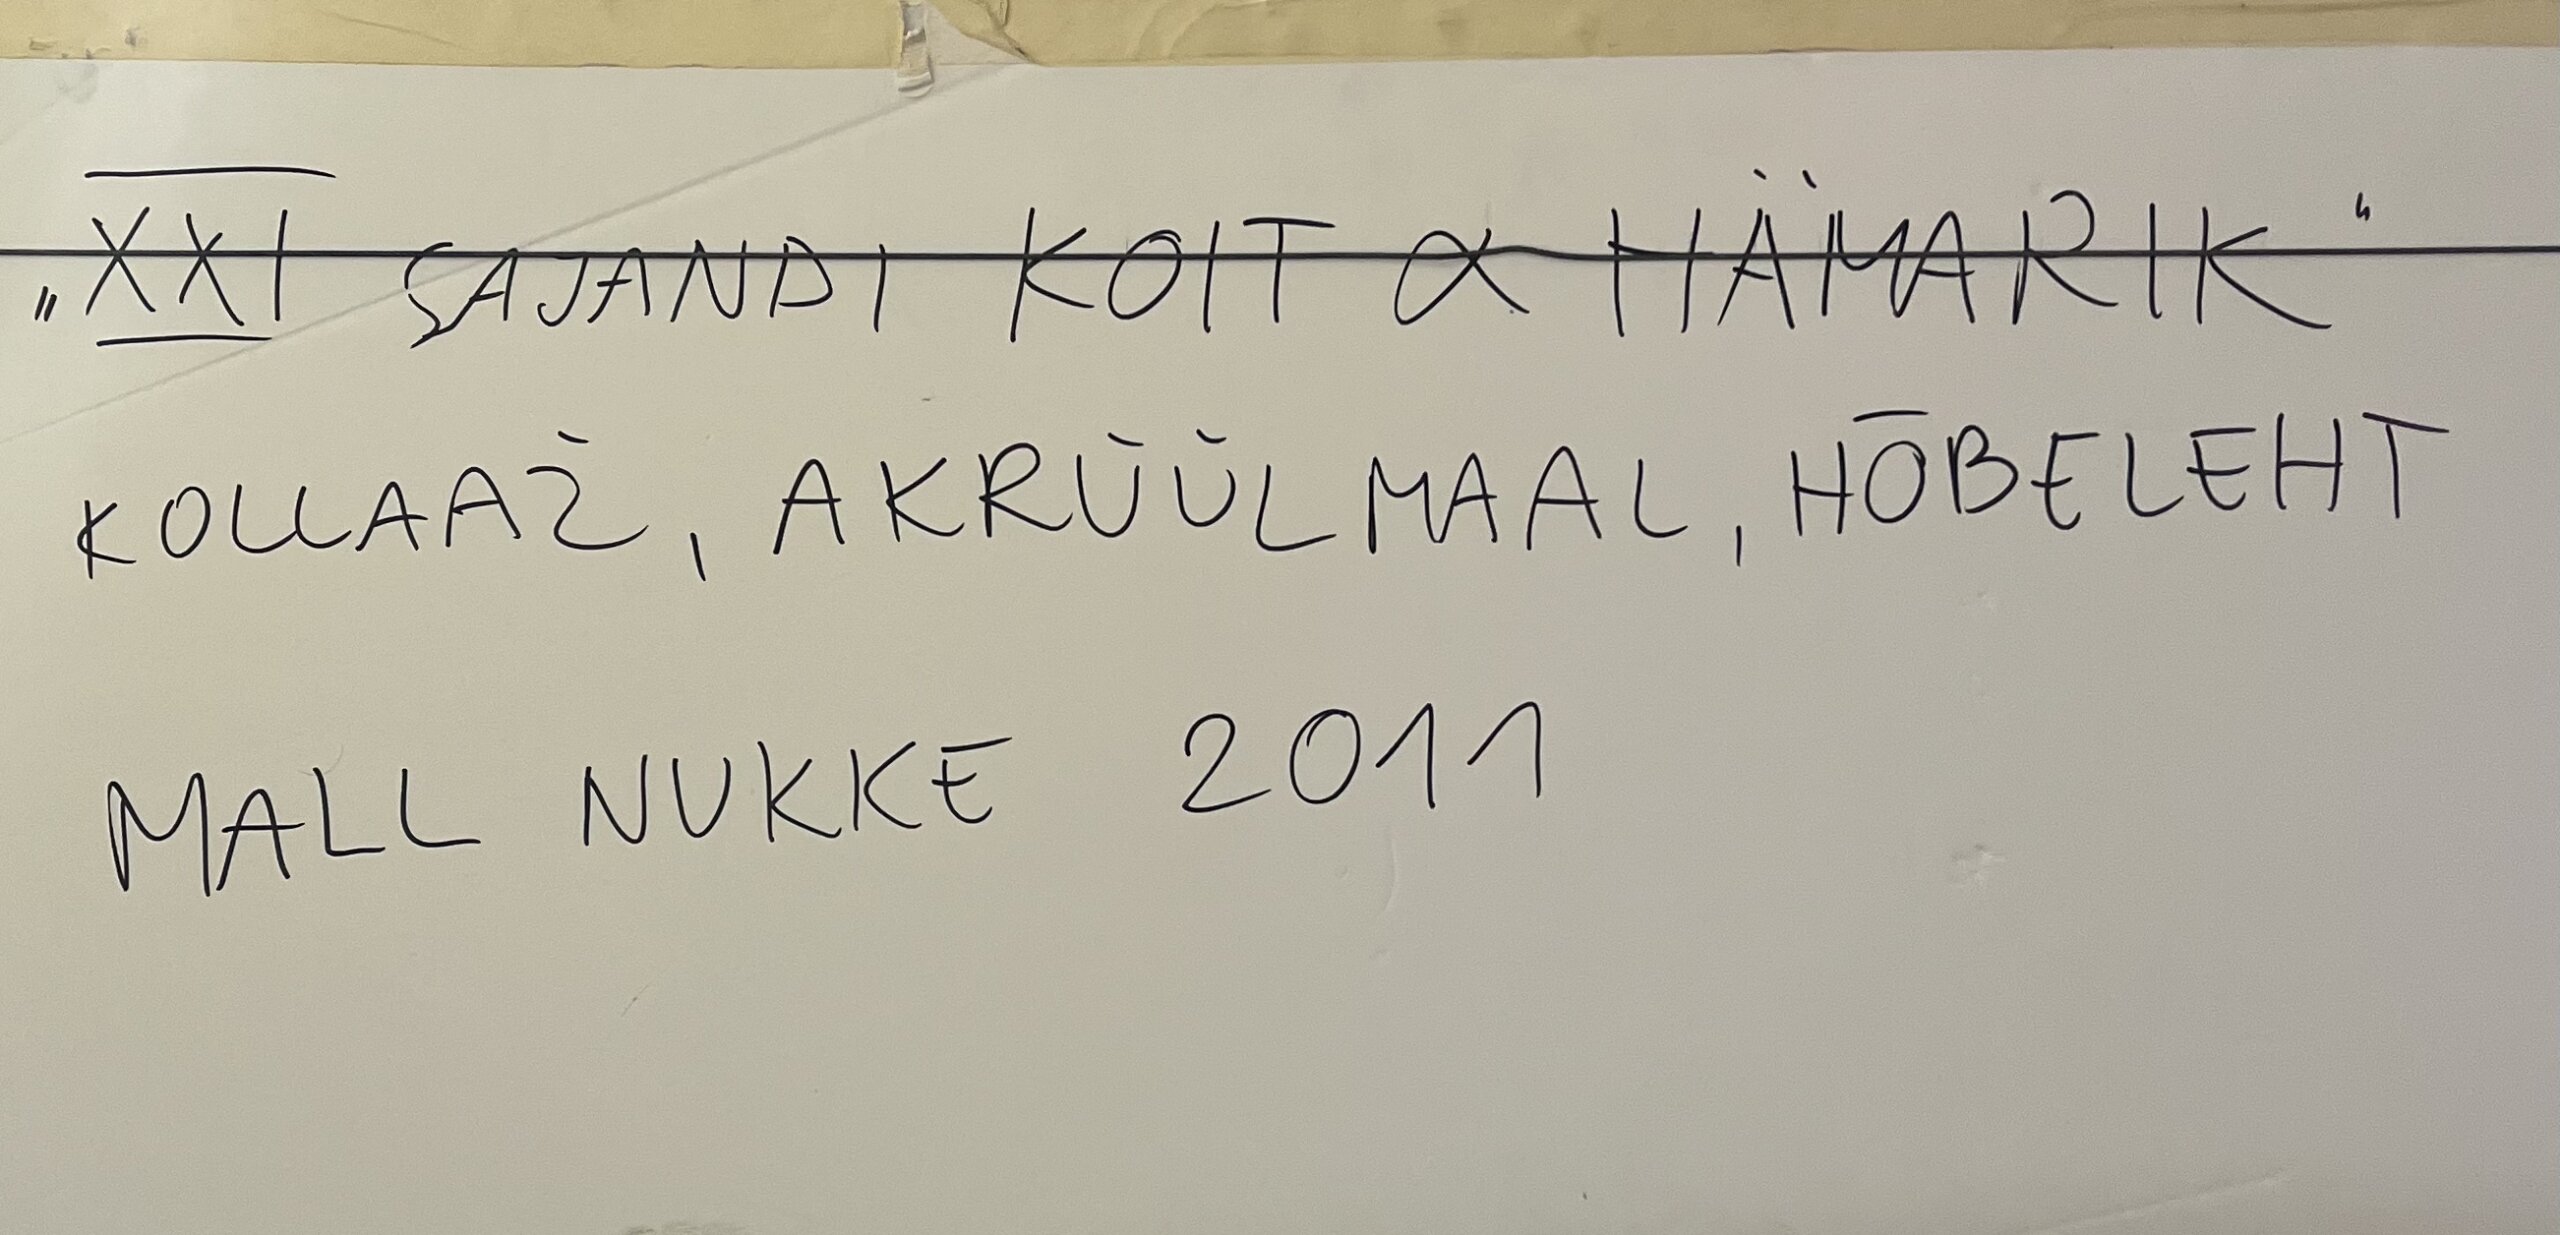 „XXI SAJANDI KOIT & HÄMARIK"
KOLLAAŽ, AKRÜÜLMAAL, HÕBELEHT
MALL NUKKE 2011